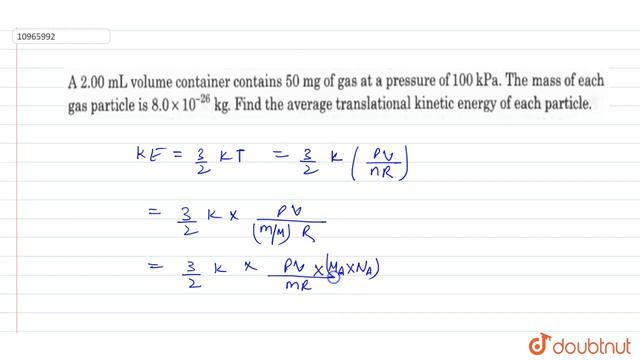 10965992
A 2.00 mL volume container contains 50 mg of gas at a pressure of 100 kPa. The mass of each
gas particle is 8.0 × 10⁻²⁶ kg. Find the average translational kinetic energy of each particle.
KE = 3/2 KT = 3/2 K (PV/nR)
= 3/2 K × PV/((m/M) R)
= 3/2 K × PV × (MA × NA)/mR
doubtnut